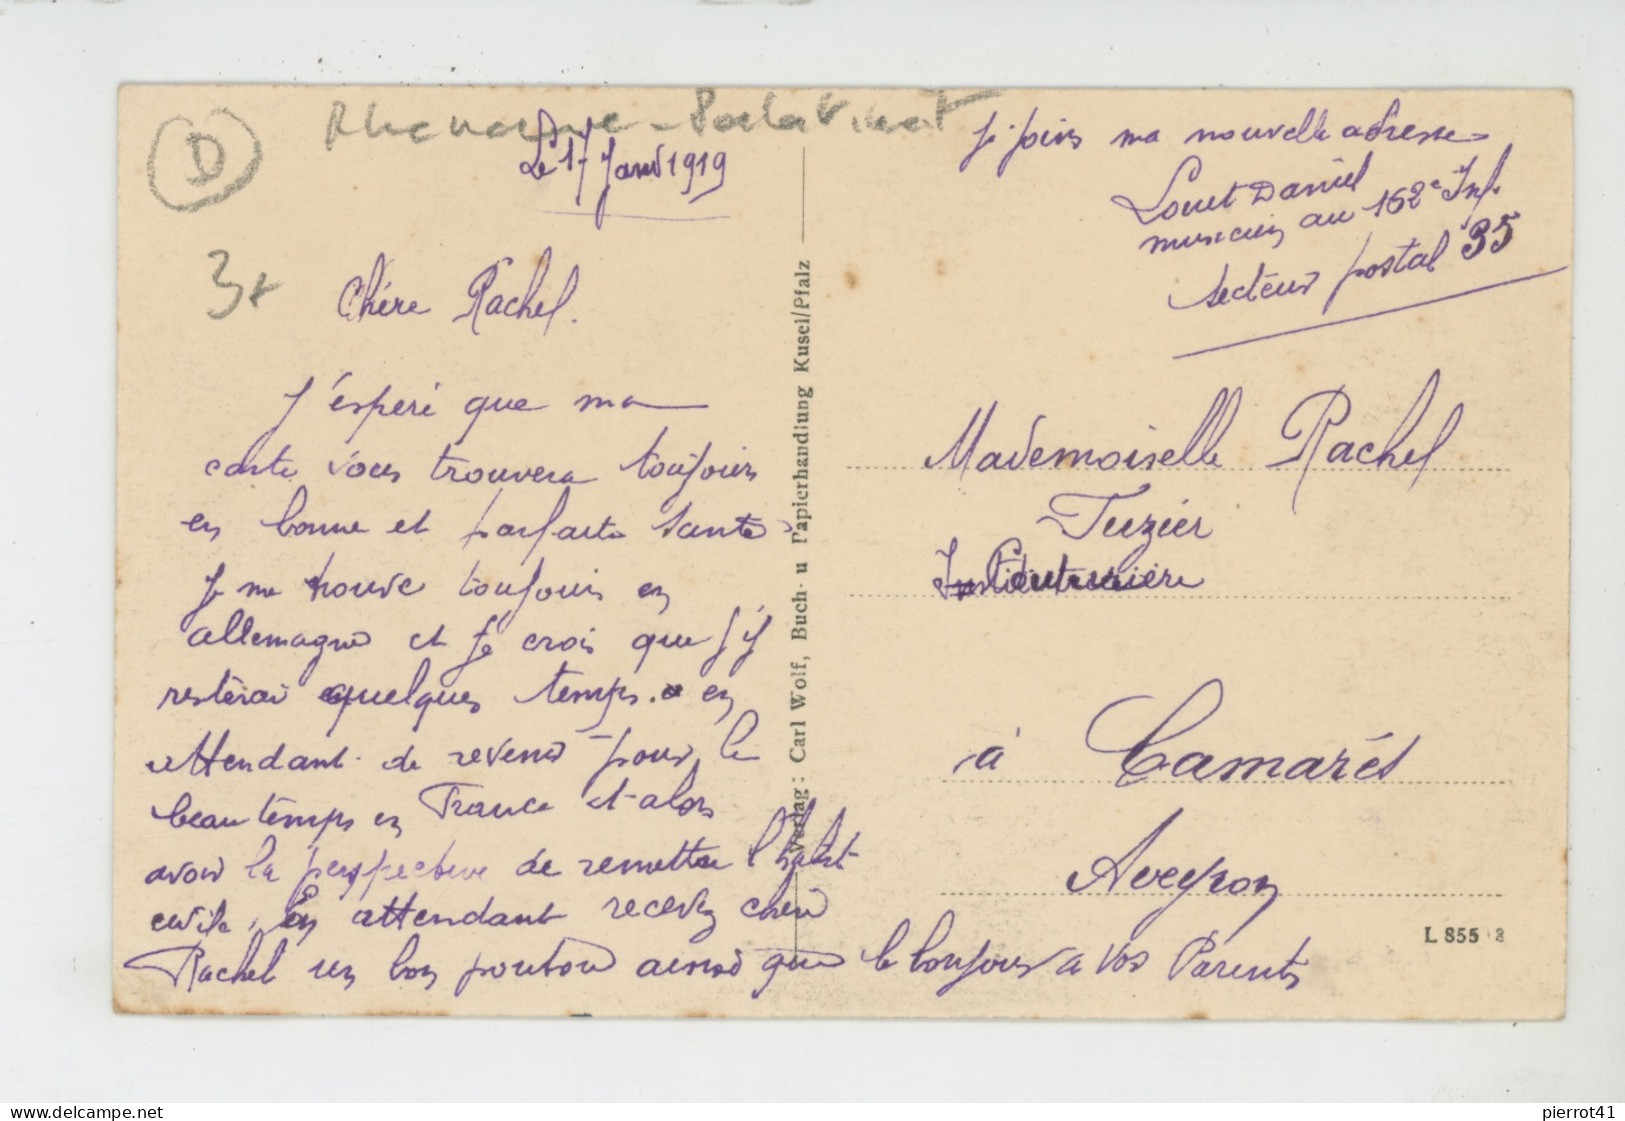 D
Rhénanie-Palatinat
3+
Le 17 Janv 1919
Chère Rachel.
J'espère que ma
carte vous trouvera toujours
en bonne et parfaite santé
Je me trouve toujours en
allemagne et je crois que j'y
resterai quelques temps. en
attendant de revenir pour le
beau temps en France et alors
avoir la perspective de remettre l'habit
civile. En attendant recevez chère
Rachel un bon poutou ainsi que le bonjour a vos Parents
Verlag: Carl Wolf, Buch- u Papierhandlung Kusel/Pfalz
Je joins ma nouvelle adresse
Louet Daniel
musicien au 162e Inf.
secteur postal 35
Mademoiselle Rachel
Tuzier
Couturière
à Camarés
Aveyron
L 855
pierrot41